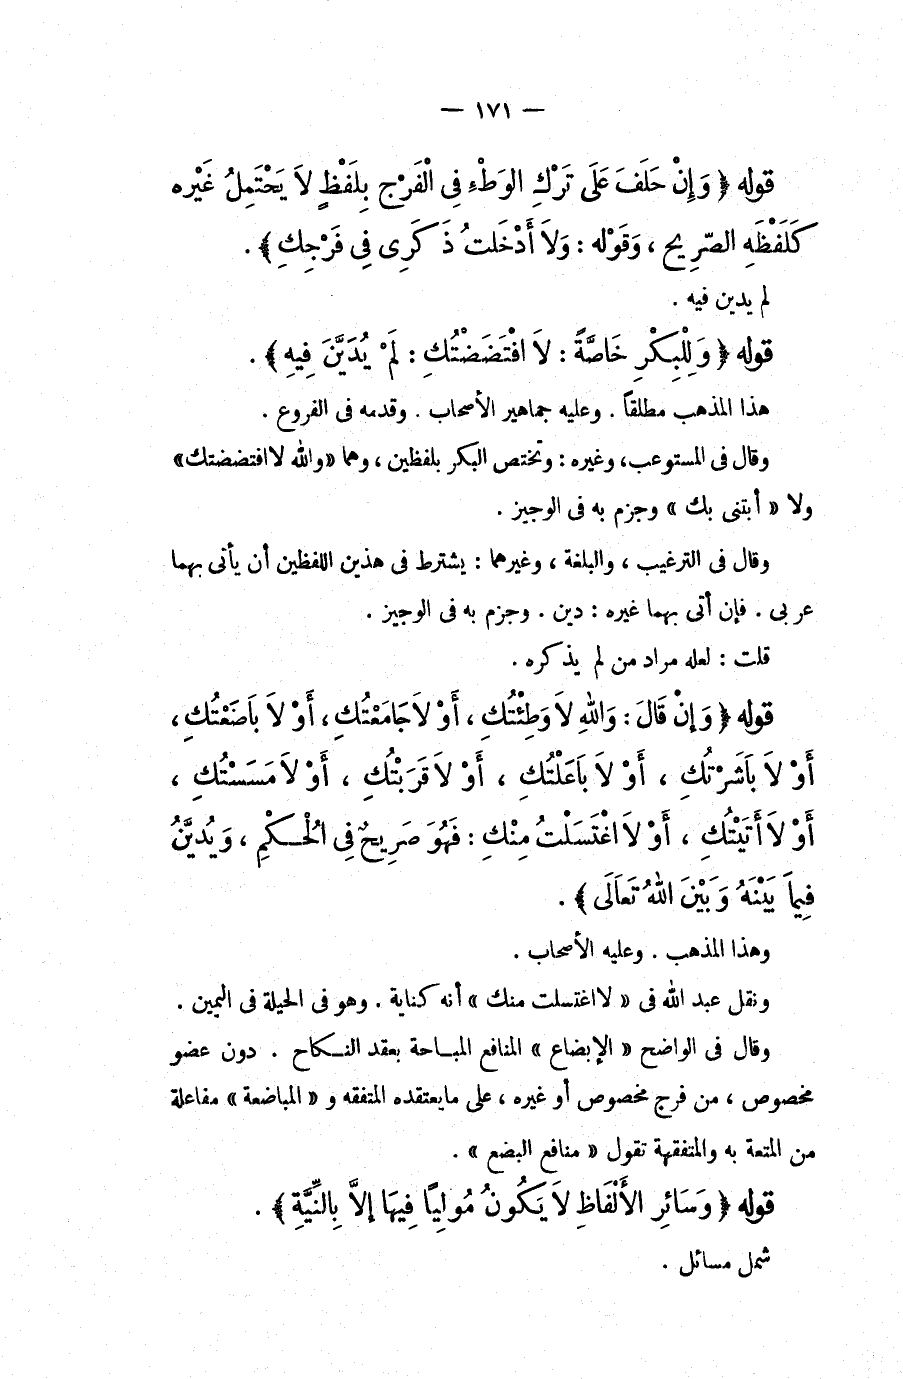 — ١٧١ —
قوله ﴿ وَإِنْ حَلَفَ عَلَى تَرْكِ الوَطْءِ فِى الْفَرْجِ بِلَفْظٍ لاَ يَحْتَمِلُ غَيْره
كَلَفْظَهِ الصّرِيحِ ، وَقَوْله : وَلاَ أَدْخَلتُ ذَكَرِى فِى فَرْجِكِ ﴾ .
لم يدين فيه .
قوله ﴿ وَلِلْبِكْرِ خَاصَّةً : لاَ افْتَضَضْتُكِ : لَمْ يُدَيَّنَ فِيهِ ﴾ .
هذا المذهب مطلقاً . وعليه جماهير الأصحاب . وقدمه فى الفروع .
وقال فى المستوعب، وغيره : وتختص البكر بلفظين ، وهما «والله لاافتضضتك»
ولا « أبتنى بك » وجزم به فى الوجيز .
وقال فى الترغيب ، والبلغة ، وغيرهما : يشترط فى هذين اللفظين أن يأتى بهما
عربى . فإن أتى بهما غيره : دين . وجزم به فى الوجيز .
قلت : لعله مراد من لم يذكره .
قوله ﴿ وَإِنْ قَالَ : وَاللهِ لاَ وَطِئْتُكِ ، أَوْ لاَ جَامَعْتُكِ، أَوْ لاَ بَاضَعْتُكِ ،
أَوْ لاَ بَاشَرْتُكِ ، أَوْ لاَ بَاعَلْتُكِ ، أَوْ لاَ قَرَبْتُكِ ، أَوْ لاَ مَسَسْتُكِ ،
أَوْ لاَ أَتَيْتُكِ ، أَوْ لاَ اغْتَسَلْتُ مِنْكِ : فَهُوَ صَرِيحٌ فِى الْحُكْمِ ، وَيُدَيَّنُ
فِيمَا بَيْنَهُ وَبَيْنَ اللهُ تَعَالَى ﴾ .
وهذا المذهب . وعليه الأصحاب .
ونقل عبد الله فى « لااغتسلت منك » أنه كناية . وهو فى الحيلة فى اليمين .
وقال فى الواضح « الإبضاع » المنافع المباحة بعقد النكاح . دون عضو
مخصوص ، من فرج مخصوص أو غيره ، على مايعتقده المتفقه و « المباضعة » مفاعلة
من المتعة به والمتفقهة تقول « منافع البضع » .
قوله ﴿ وَسَائِر الأَلْفَاظِ لاَ يَكُونُ مُولِيًا فِيهَا إلاَّ بِالنِّيَّةِ ﴾ .
شمل مسائل .